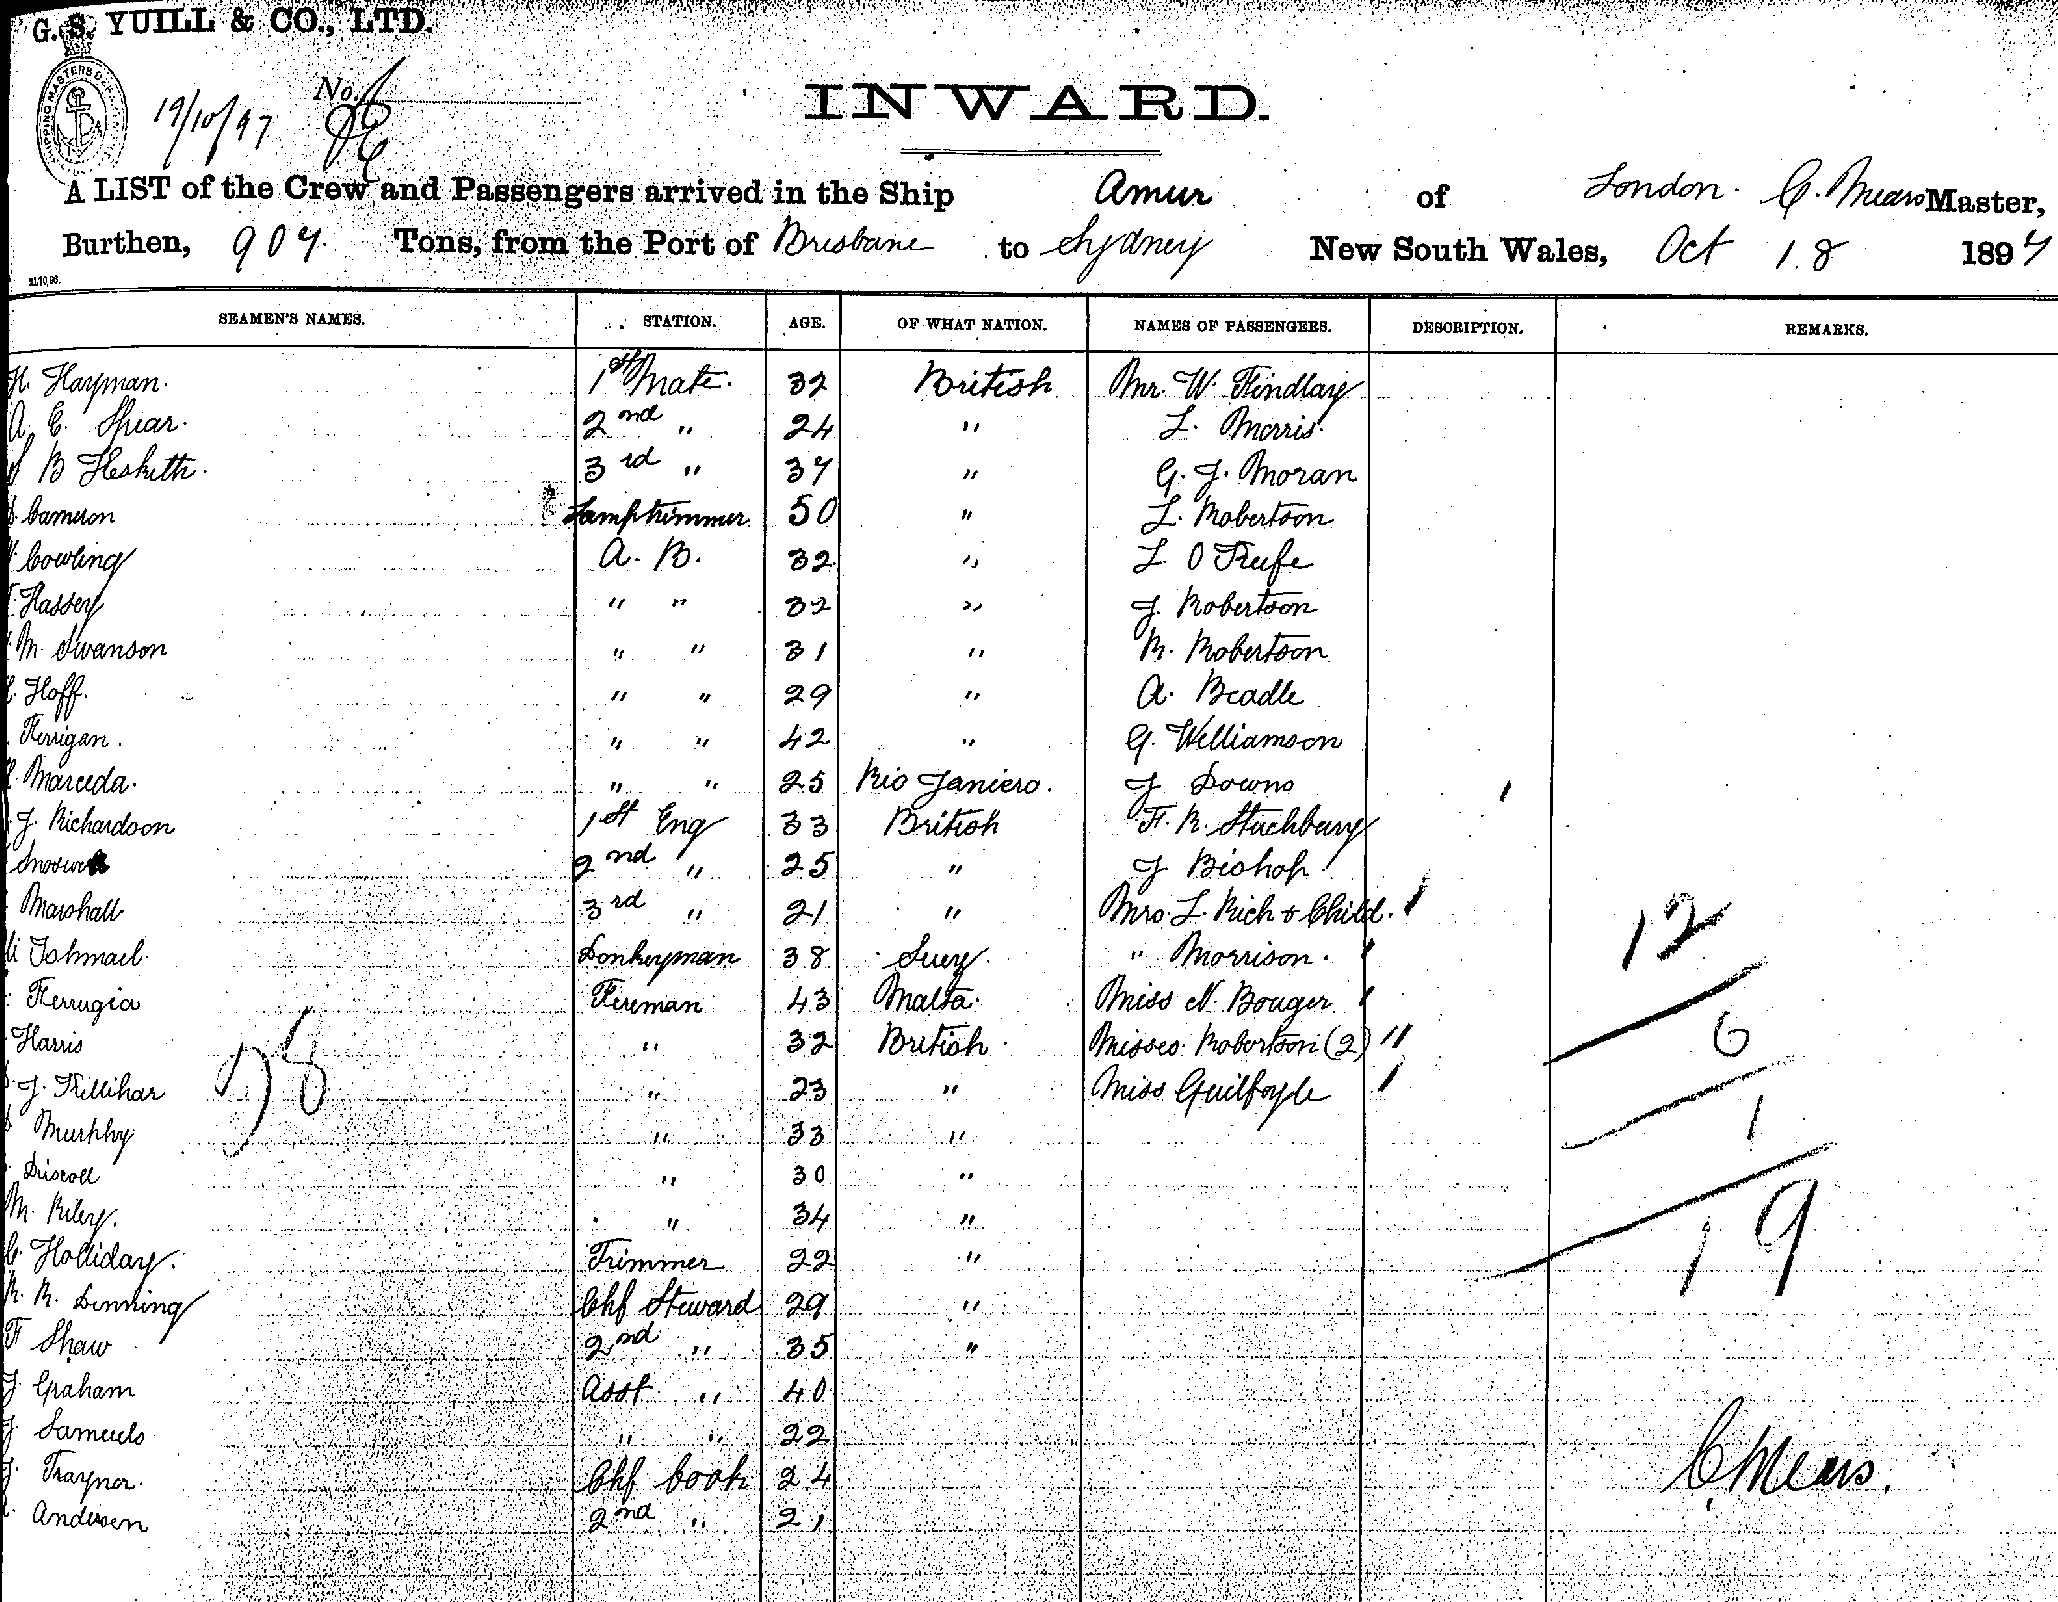 G. S. YUILL & CO., LTD.
19/10/97 No.
INWARD.
A LIST of the Crew and Passengers arrived in the Ship Amur of London. C. Mears Master,
Burthen, 907. Tons, from the Port of Brisbane to Sydney New South Wales, Oct 18 1897
SEAMEN'S NAMES. STATION. AGE. OF WHAT NATION. NAMES OF PASSENGERS. DESCRIPTION. REMARKS.
H. Hayman. 1st Mate. 32 British Mr. W. Findlay
A. E. Spear. 2nd " 24 " L. Morris.
B Hesketh. 3rd " 37 " G. J. Moran
Cameron Lamptrimmer 50 " L. Robertson
Cowling A. B. 32 " L O'Keefe
Hassey " " 32 " J. Robertson
M. Swanson " " 31 " R. Robertson
Hoff. " " 29 " A. Beadle
Kerrigan. " " 42 " G. Williamson
Marceda. " " 25 Rio Janiero. J Downs
J. Richardson 1st Eng 33 British F. R. Stuchbury
2nd " 25 " J Bishop
Marshall 3rd " 21 " Mrs. L. Rich & Child.
Ishmael. Donkeyman 38 Suez. " Morrison.
Ferrugia Fireman 43 Malta. Miss N. Bouger
Harris " 32 British. Misses Robertson (2)
J. Killihar " 23 " Miss Guilfoyle
Murphy " 33 "
Driscoll " 30 "
M. Riley. " 34 "
C. Holliday. Trimmer 22 "
R. R. Denning Chf Steward 29 "
F Shaw 2nd " 35 "
J Graham Asst " 40
J Samuels " " 22
J. Traynor. Chf Cook 24
Andersen 2nd " 21
12
6
1
19
C. Mears.